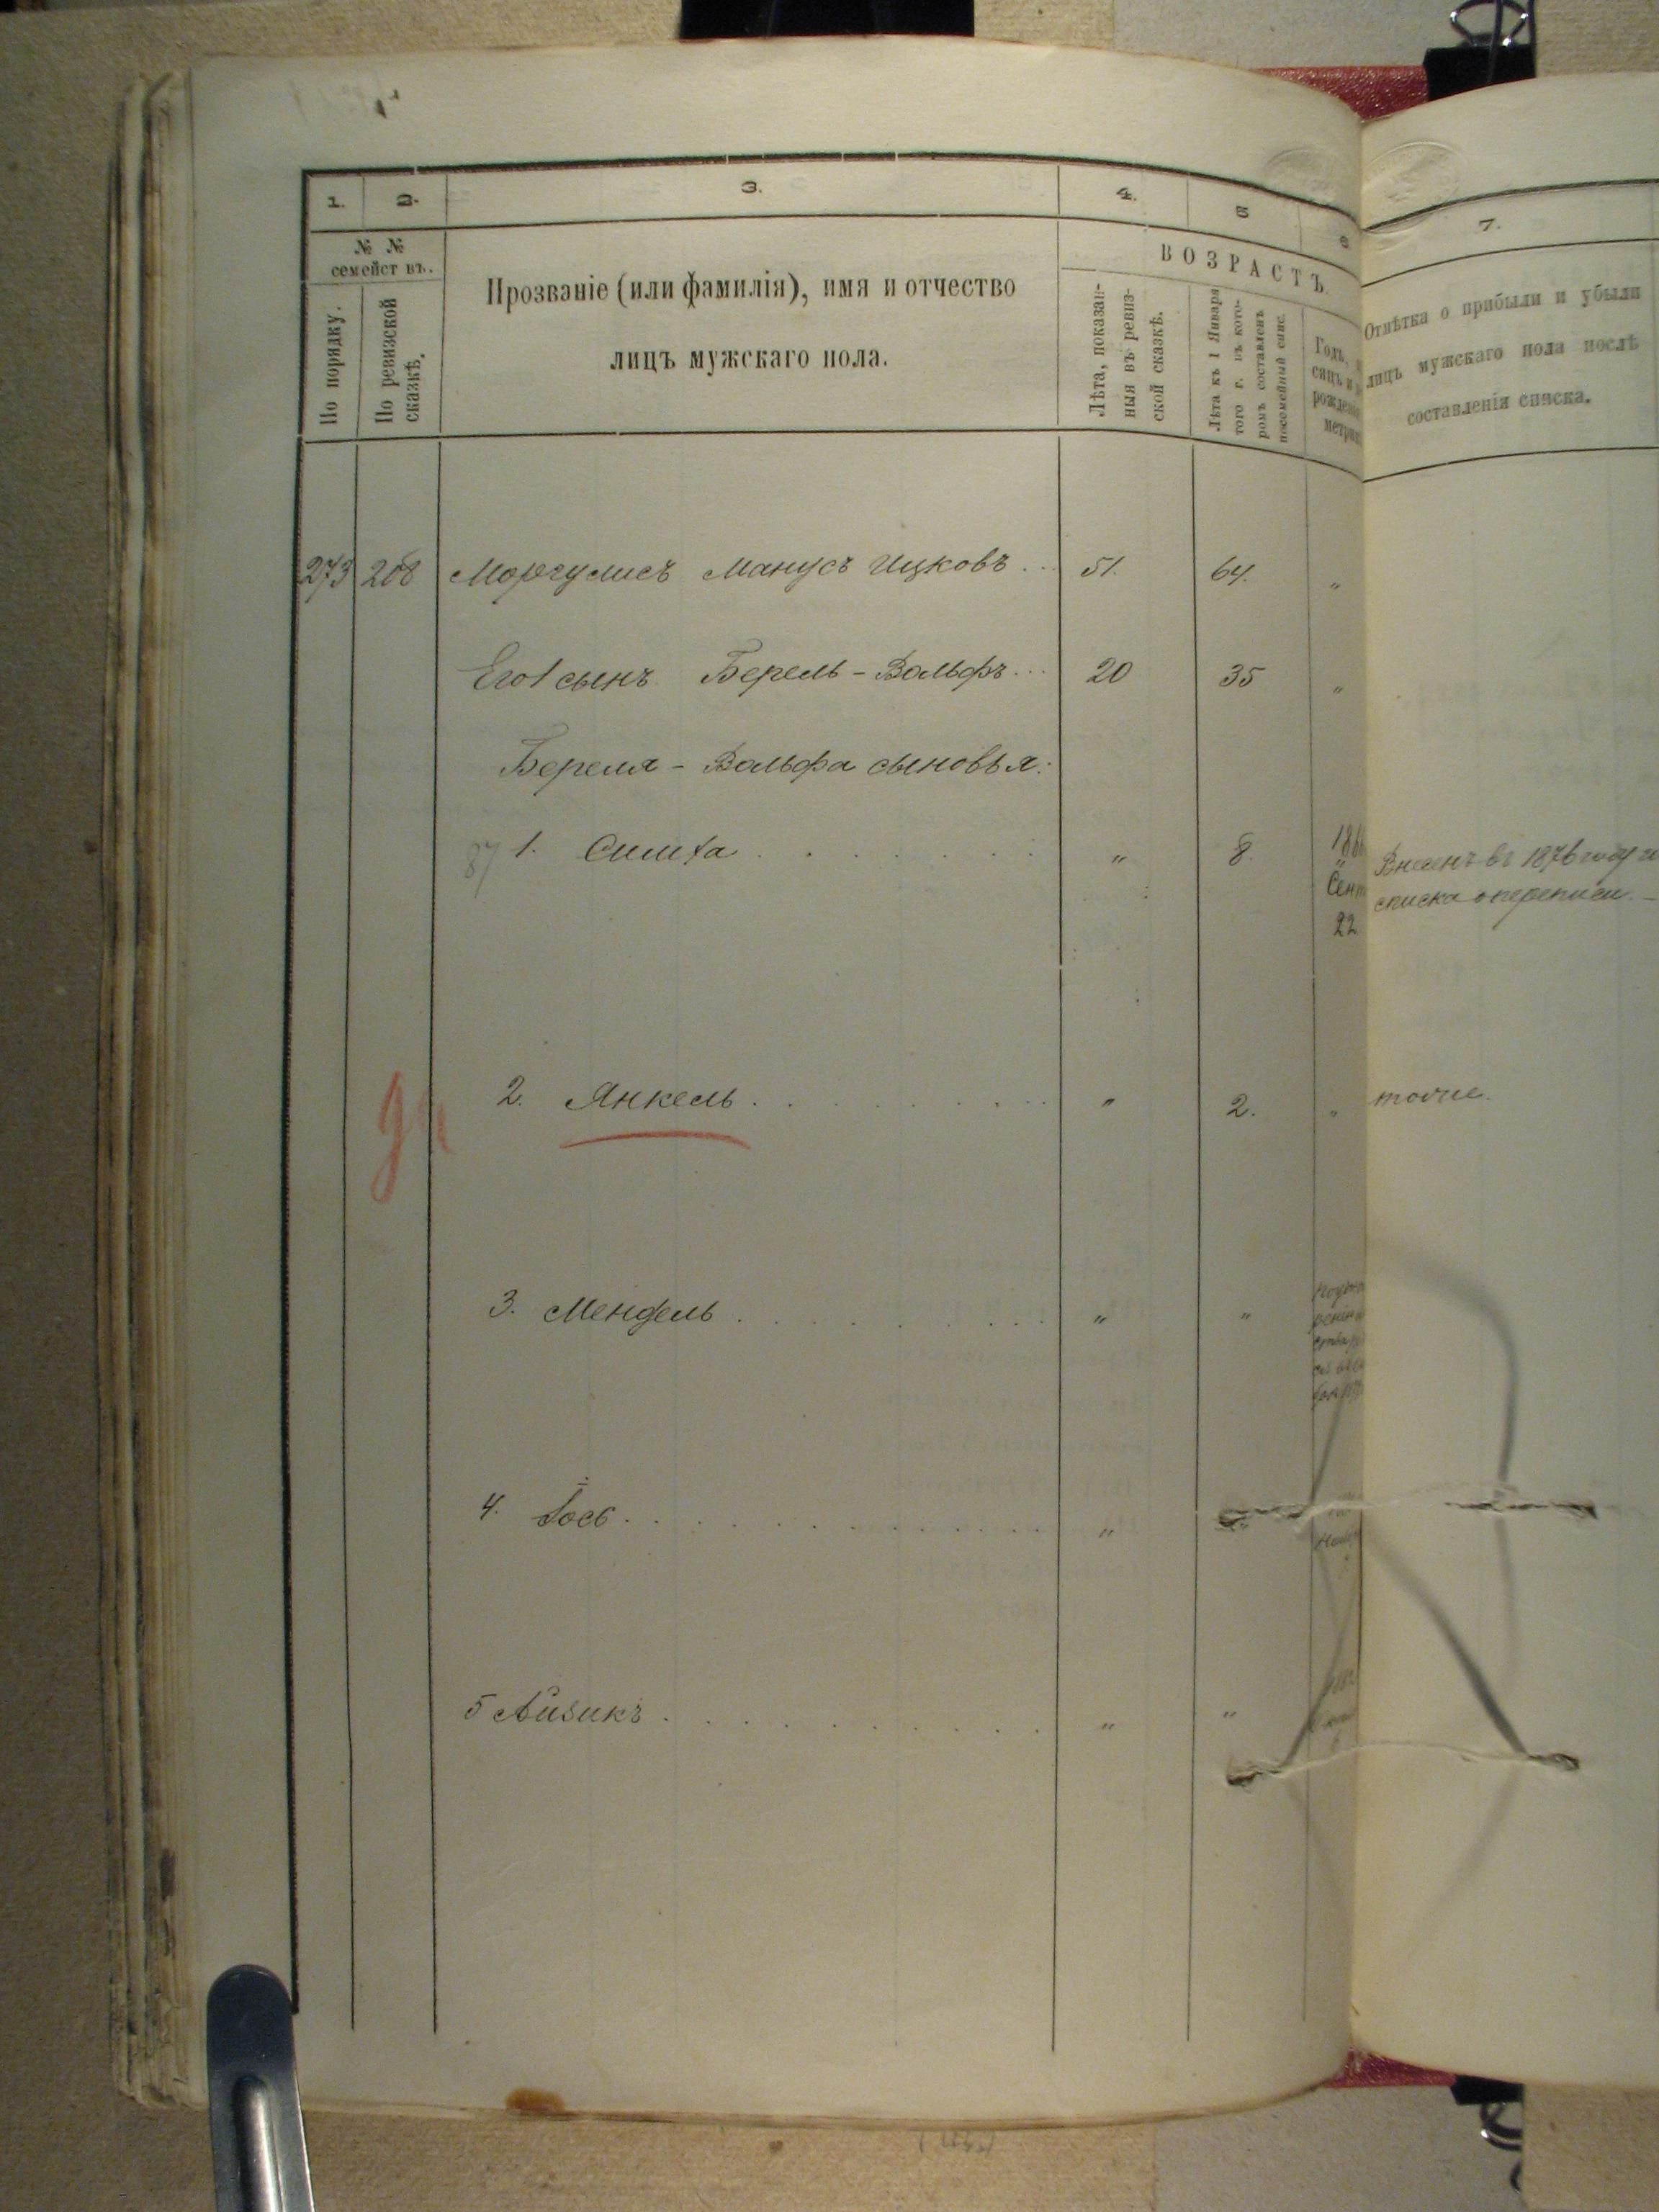 1. 2. 3. 4. 5 6 7.
№ №
семействъ.
По порядку.
По ревизской
сказкѣ.
Прозваніе (или фамилія), имя и отчество
лицъ мужскаго пола.
ВОЗРАСТЪ.
Лѣта, показан-
ныя въ ревиз-
ской сказкѣ.
Лѣта къ 1 Января
того г. въ кото-
ромъ составленъ
посемейный спис.
Годъ,
рожденія
Отмѣтка о прибыли и убыли
лицъ мужскаго пола послѣ
составленія списка.
273 208 Моргулисъ Манусъ Ицковъ... 51. 64. "
Его 1 сынъ Берель-Вольфъ... 20 35 "
Береля-Вольфа сыновья:
87 1. Симха " 8.
Сент
22
Внесенъ въ 1876 году
списка о переписи. -
да
2. Янкель " 2. " тоже.
3. Мендель " "
4. Іось "
5 Айзикъ " "